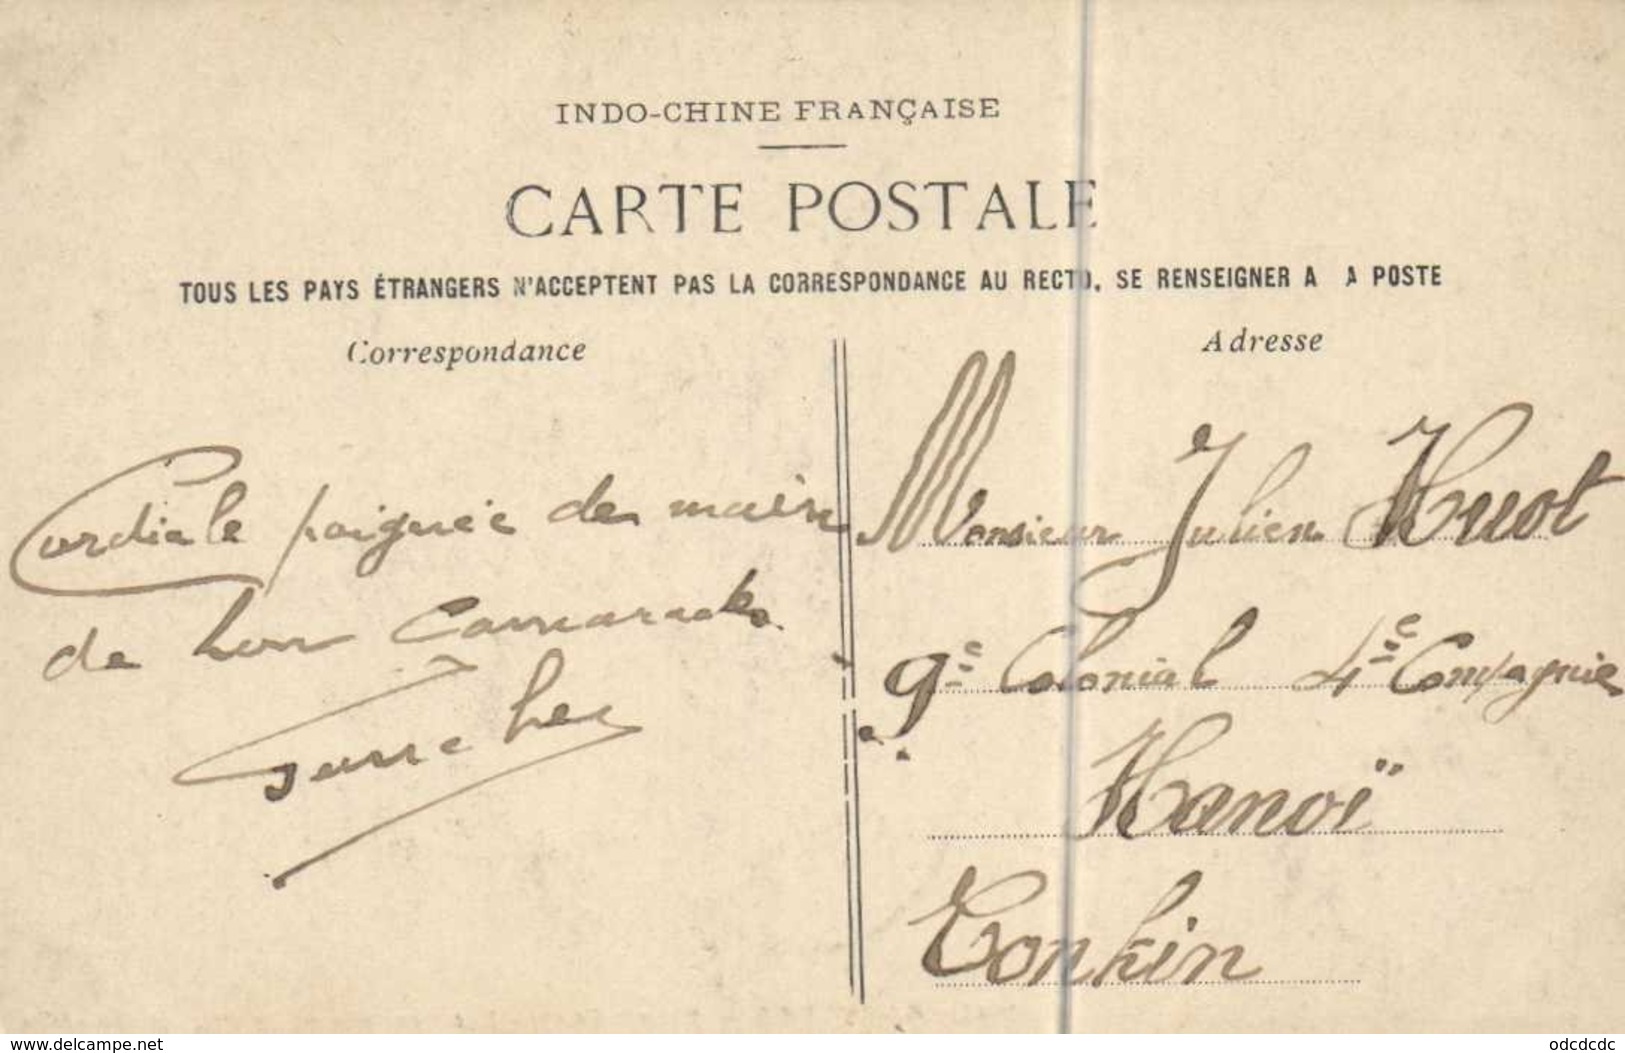 INDO-CHINE FRANÇAISE
CARTE POSTALE
TOUS LES PAYS ÉTRANGERS N'ACCEPTENT PAS LA CORRESPONDANCE AU RECTO, SE RENSEIGNER A A POSTE
Correspondance
Cordiale poignée de main
de bon Camarade
Adresse
Monsieur Julien Huot
9e Colonial 4e Compagnie
Hanoï
Tonkin
www.delcampe.net
odcdcdc